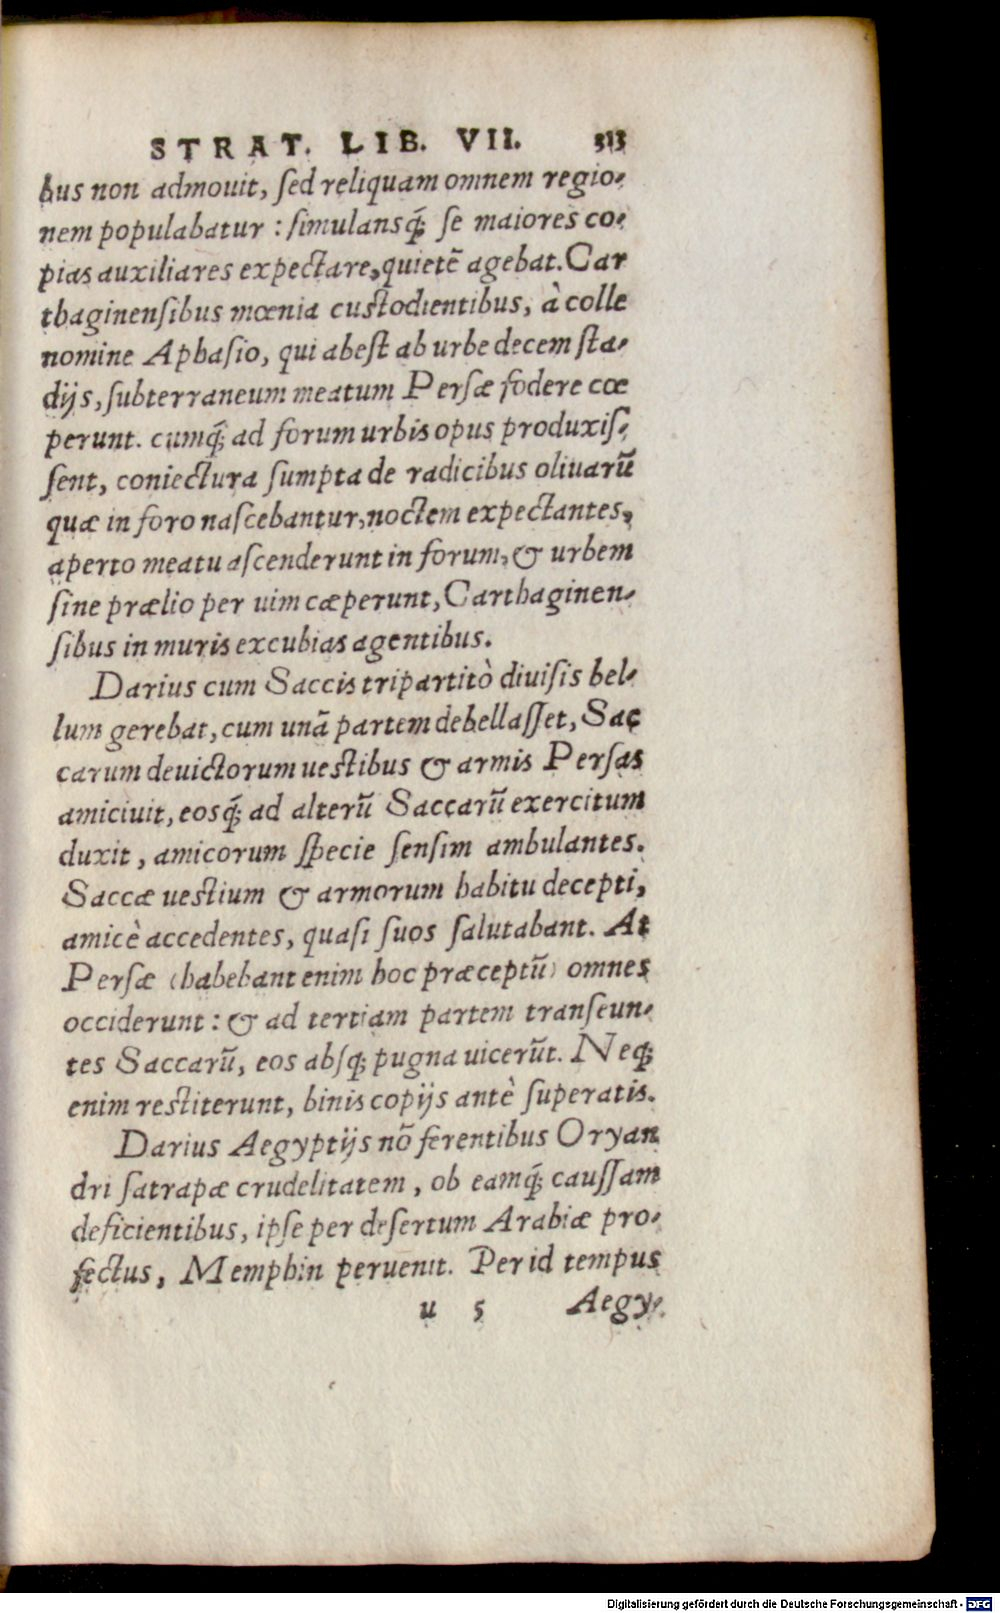 STRAT. LIB. VII. 313
bus non admouit, ſed reliquam omnem regio-
nem populabatur : ſimulansq́; ſe maiores co-
pias auxiliares expectare, quietē agebat. Car
thaginenſibus mœnia custodientibus, à colle
nomine Aphaſio, qui abest ab urbe decem sta-
dijs, ſubterraneum meatum Perſæ fodere cœ
perunt. cumq́; ad forum urbis opus produxiſ-
ſent, coniectura ſumpta de radicibus oliuarū
quæ in foro naſcebantur, noctem expectantes,
aperto meatu aſcenderunt in forum, & urbem
ſine prælio per uim cæperunt, Carthaginen-
ſibus in muris excubias agentibus.
Darius cum Saccis tripartitò diuiſis bel-
lum gerebat, cum unā partem debellaſſet, Sac
carum deuictorum uestibus & armis Perſas
amiciuit, eosq́; ad alterū Saccarū exercitum
duxit, amicorum ſpecie ſenſim ambulantes.
Saccæ uestium & armorum habitu decepti,
amicè accedentes, quaſi ſuos ſalutabant. At
Perſæ (habebant enim hoc præceptū) omnes
occiderunt : & ad tertiam partem tranſeun-
tes Saccarū, eos abſq; pugna uicerūt. Neq;
enim restiterunt, binis copijs antè ſuperatis.
Darius Aegyptijs nō ferentibus Oryan
dri ſatrapæ crudelitatem, ob eamq́; cauſſam
deficientibus, ipſe per deſertum Arabiæ pro-
fectus, Memphin peruenit. Per id tempus
u 5 Aegy-
Digitalisierung gefördert durch die Deutsche Forschungsgemeinschaft - DFG